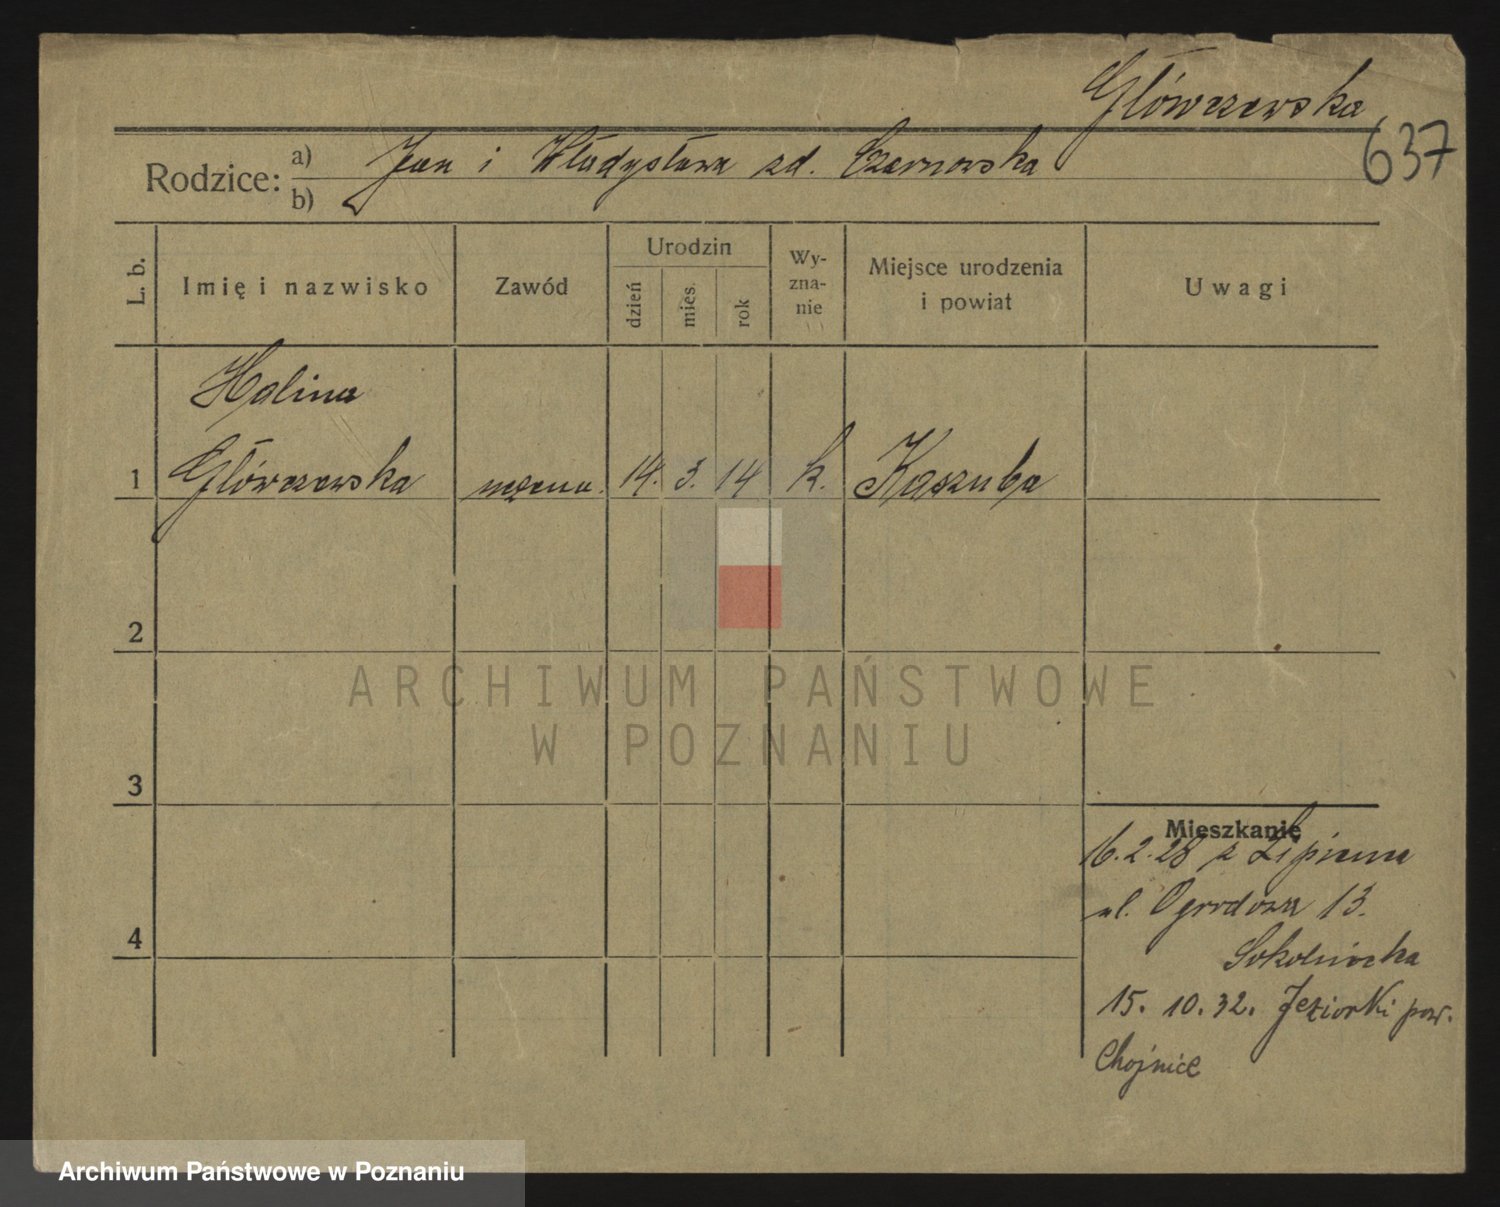 Główczewska
637
Rodzice: a) Jan i Władysława zd. Czarnowska
b)
L. b.
Imię i nazwisko
Zawód
Urodzin
dzień
mies.
rok
Wy-
zna-
nie
Miejsce urodzenia
i powiat
Uwagi
Halina
1 Główczewska uczenn. 14. 3. 14 k. Kaszuba
2
3
4
ARCHIWUM PAŃSTWOWE
W POZNANIU
Mieszkanie
16.2.28 z
ul. Ogrodowa 13.
15. 10. 32. Jeziorki pow.
Chojnice
Archiwum Państwowe w Poznaniu